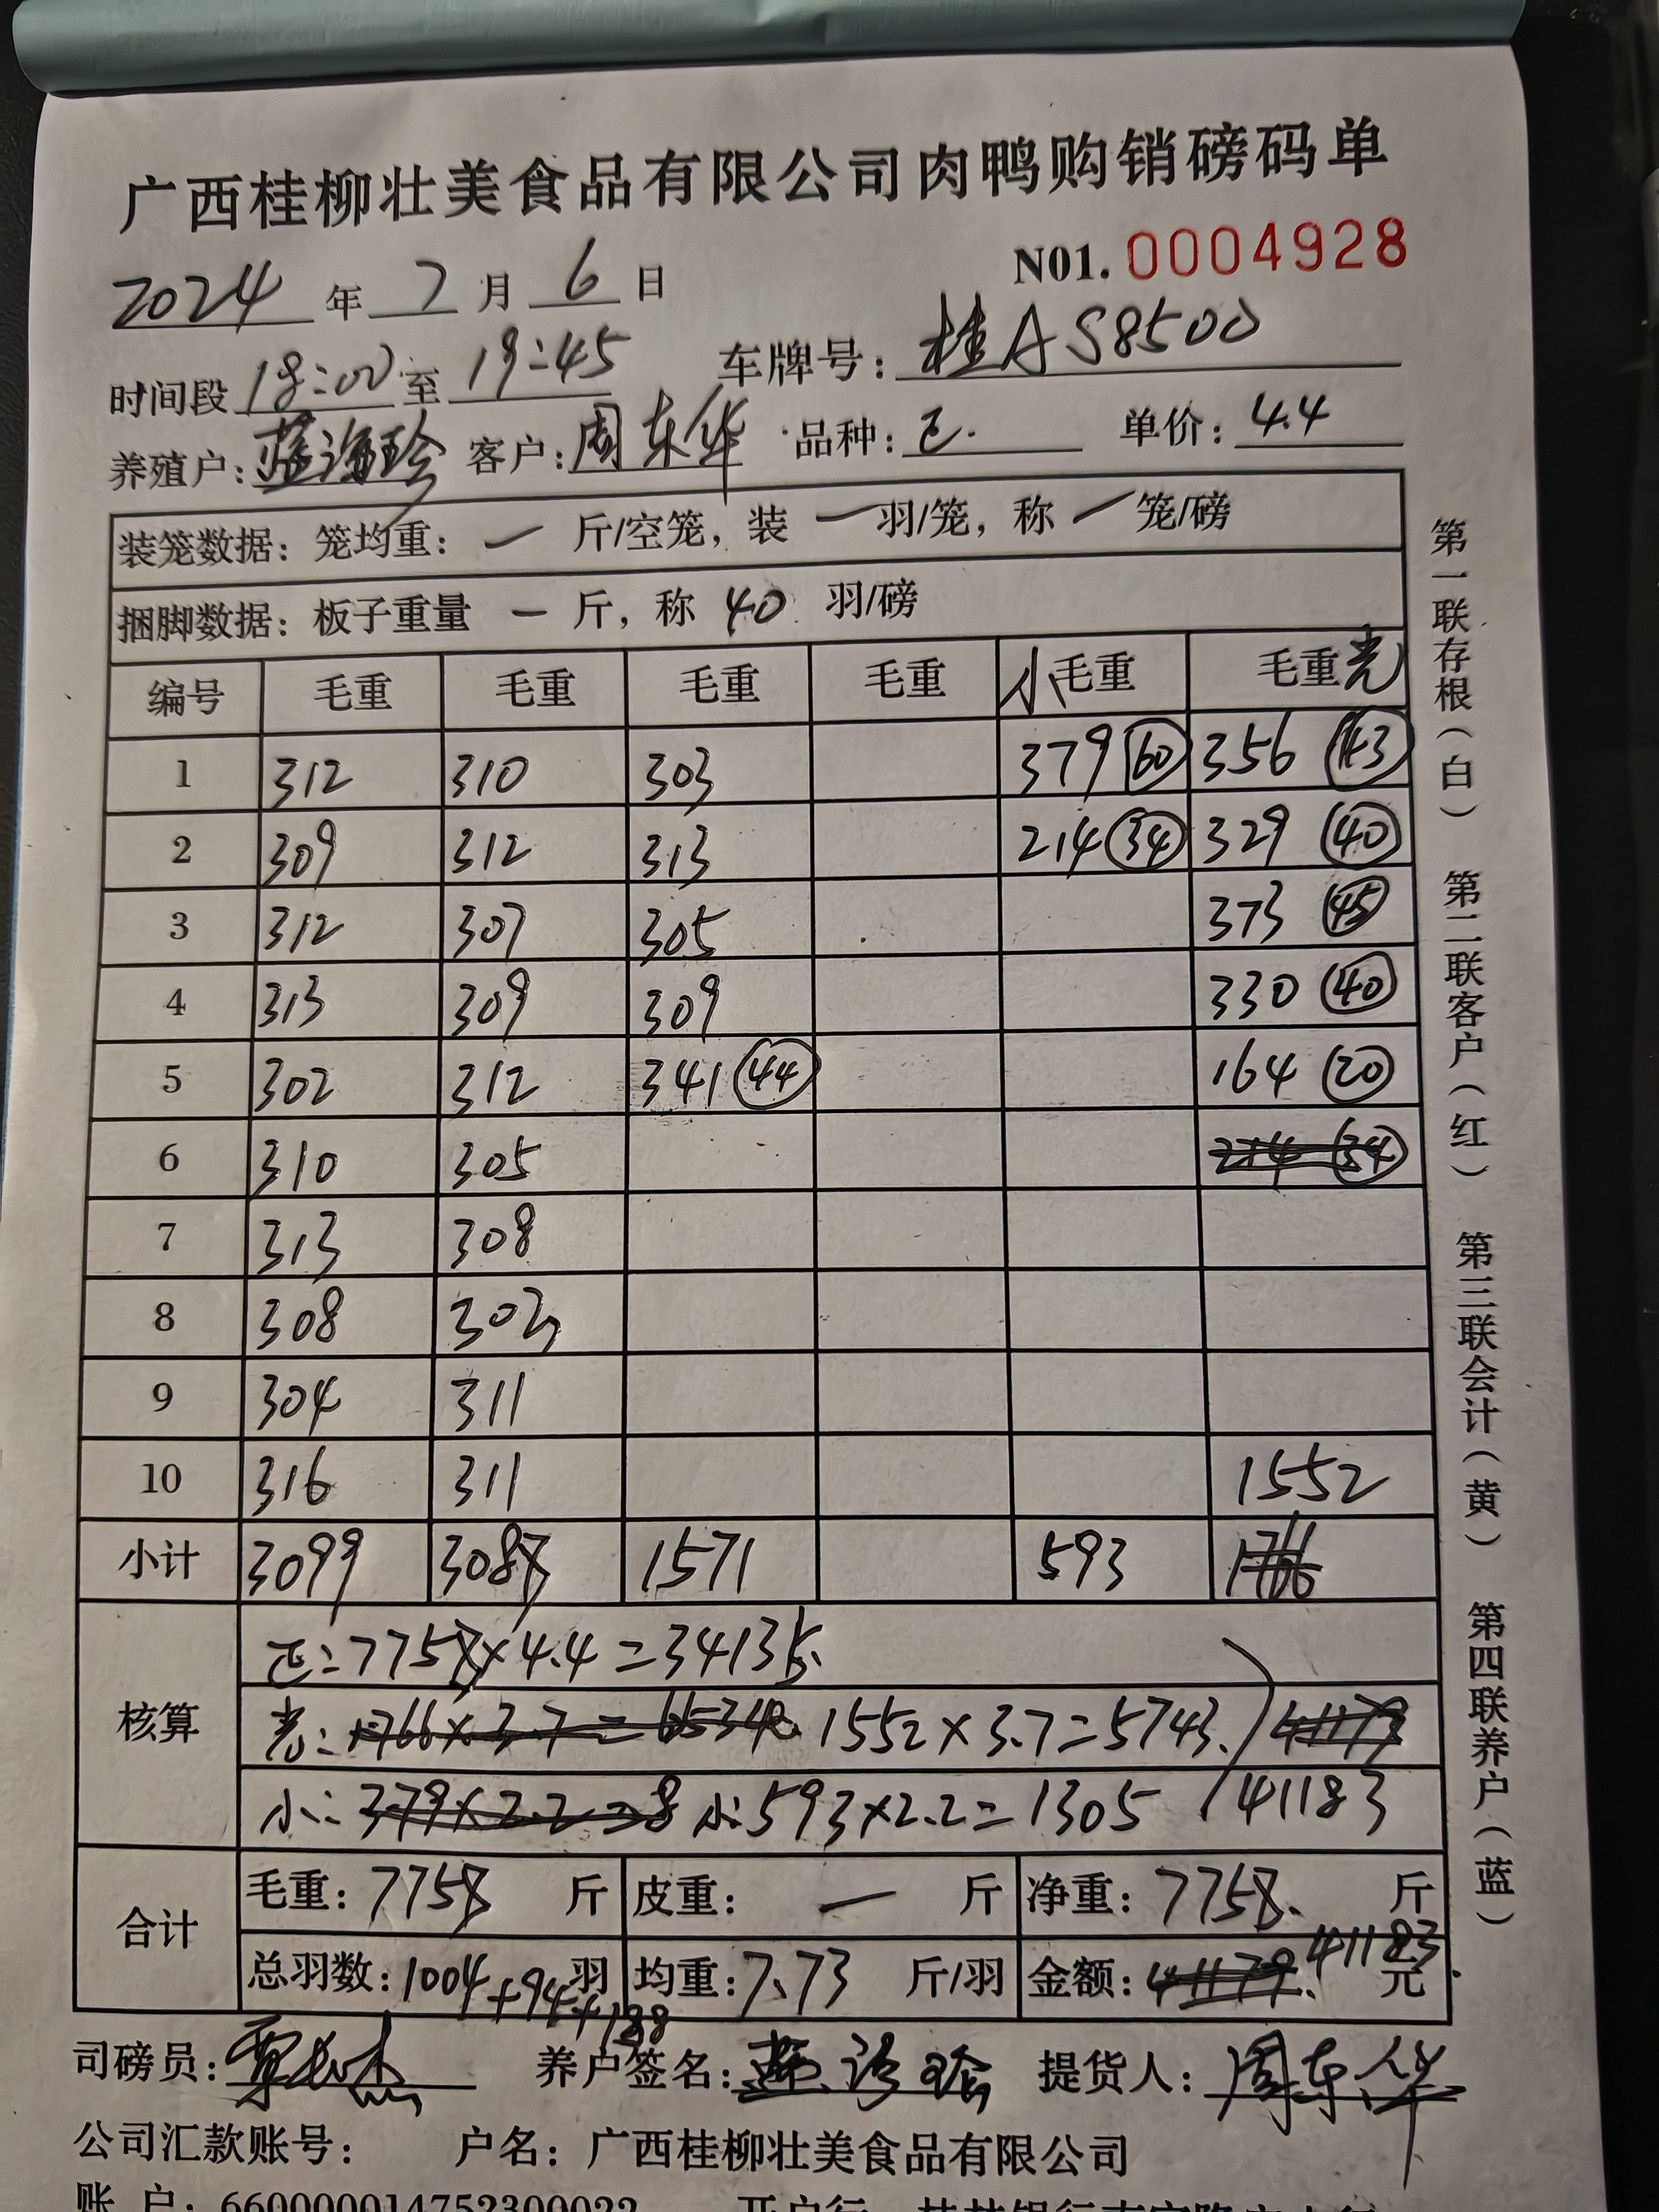 广西桂柳壮美食品有限公司肉鸭购销磅码单
N01. 0004928
2024 年 7 月 6 日
时间段 18:00 至 19:45 车牌号: 桂AS8500
养殖户: 蓝海玲 客户: 周东华 品种: 正. 单价: 4.4
装笼数据: 笼均重: 一 斤/空笼, 装 一 羽/笼, 称 一 笼/磅
捆脚数据: 板子重量 一 斤, 称 40 羽/磅
编号 毛重 毛重 毛重 毛重 小毛重 毛重光
1 312 310 303 379 60 356 43
2 309 312 313 214 34 329 40
3 312 307 305 373 45
4 313 309 309 330 40
5 302 312 341 44 164 20
6 310 305 214 34
7 313 308
8 308 303
9 304 311
10 316 311 1552
小计 3099 3088 1571 593 1766
核算
正:7758×4.4=34135.
光:1766×3.7=65340 1552×3.7=5743. 41179
小:379×2.2=8 小:593×2.2=1305 41183
合计
毛重: 7758 斤 皮重: 一 斤 净重: 7758. 斤
总羽数: 1004+94+188 羽 均重: 7.73 斤/羽 金额: 41179. 41183 元
司磅员: 养户签名: 提货人: 周东华
公司汇款账号: 户名: 广西桂柳壮美食品有限公司
账 户: 660000014752300022 开户行:
第一联存根(白) 第二联客户(红) 第三联会计(黄) 第四联养户(蓝)